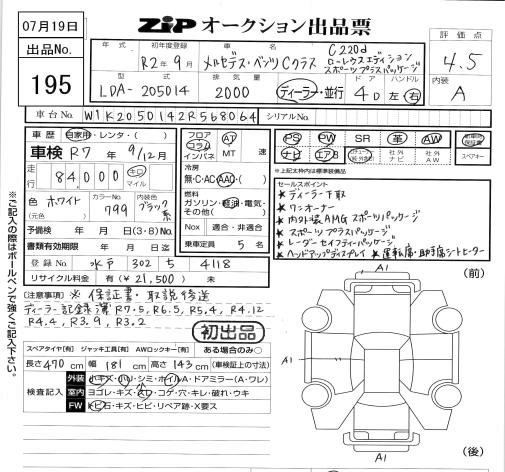 07月19日
ZIP オークション出品票
評価点
4.5
内装
A
出品No.
195
年式
初年度登録
R2年9月
車名
メルセデス・ベンツCクラス
C220d
ローレウスエディション
スポーツプラスパッケージ
型式
LDA-205014
排気量
2000
ディーラー・並行
ドア
4D
ハンドル
左・右
車台No.
W1K2050142R568064
シリアルNo.
車歴
自家用・レンタ・( )
車検 R7年9/12月
走行
84,000
キロ
マイル
色 ホワイト
(元色 )
カラーNo.
799
内装色
ブラック系
予備検 年 月 日(3・8)・Mo
書類有効期限 年 月 日迄
登録No. 水戸 302 ち 4118
リサイクル料金 有(¥21,500)未
フロア
コラム
インパネ
AT
MT
速
冷房
無・C・AC・AAC・( )
燃料
ガソリン・軽油・電気・
その他( )
Nox 適合・非適合
乗車定員 5名
PS PW SR 革 AW
ナビ エアB
社外
ナビ
社外
AW
スペアキー
※上記太枠は標準装備品
セールスポイント
★ディーラー下取
★ワンオーナー
★内外装AMGスポーツパッケージ
★スポーツプラスパッケージ
★レーダーセイフティーパッケージ
★ヘッドアップディスプレイ ★運転席・助手席シートヒーター
(注意事項) ※保証書・取説後送
ディーラー記録簿 R7.5, R6.5, R5.4, R4.12
R4.4, R3.9, R3.2
初出品
スペアタイヤ[有] ジャッキ工具[有] AWロックキー[有] ある場合のみ〇
長さ470cm 幅181cm 高さ143cm(車検証上の寸法)
検査記入
外装 小キズ・小凹・シミ・ホイルA・ドアミラー(A・ワレ)
室内 ヨゴレ・キズ・スレ・コゲ・穴・キレ・破れ・ウキ
FW トビ石・キズ・ヒビ・リペア跡・X要ス
※ご記入の際はボールペンで強くご記入下さい。
A1
(前)
A1
A1
(後)